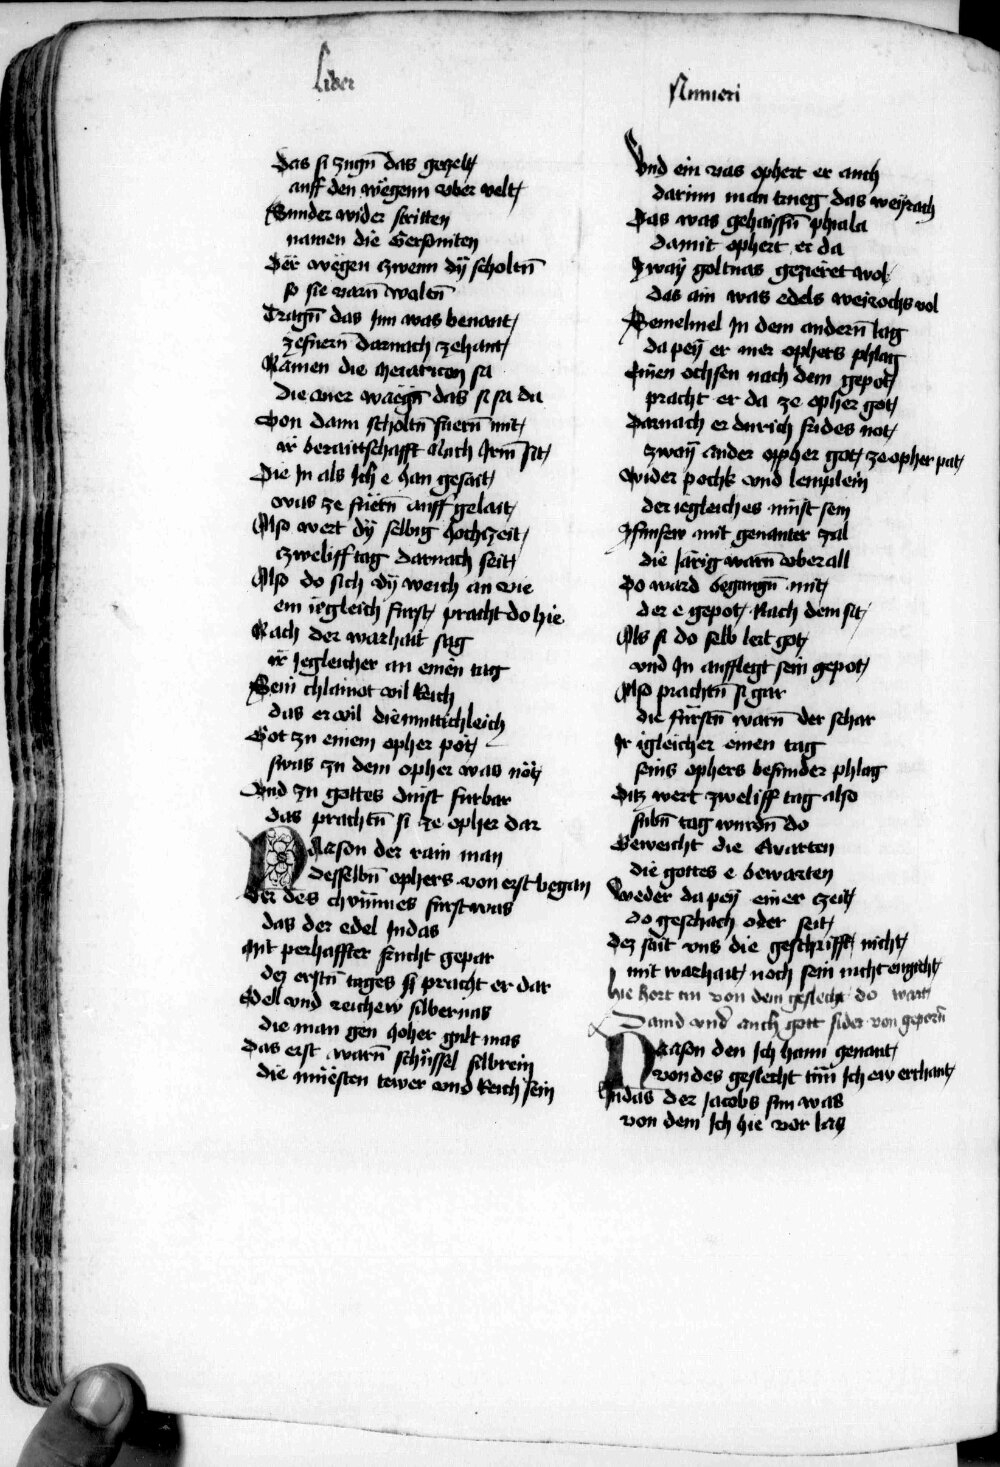 Liber
Numeri
Das si zugn̄ das geczelt
auff den wëgenn vber velt
Sunder wider stritten
namen die Gersoniten
Der wëgen czwenn dÿ scholtn̄
so sie varn̄ woltn̄
Tragn̄ das Inn was benant
zefuern̄ darnach zehant
Namen die
die aver wäegn̄ das si sa da
Von dann scholtn̄ fuern̄ mit
ir beraittschafft Nach Irm̄ sit
Die In als Ich e han gesait
was ze fuern̄ auff gelait
Also wert dÿ selbig hochzeit
zweliff tag darnach seit
Also do sich dÿ weich an vie
ein iegleich furst pracht do hie
Nach der warhait sag
ir Iegleicher an einen tag
Sein chlainot vil Reich
das er vil diemutichleich
Got zu einem opher pot
swas zu dem opher was nöt
Vnd zu gottes dinst furbar
das prachtn̄ si ze opher dar
Naason der rain man
desselbn̄ ophers von erst began
Der des chvnnes furst was
das der edel Iudas
Mit perhaffter frucht gepar
dez erstn̄ tages si pracht er dar
Edel vnd reichew silbernas
die man gen hoher gult mas
Das erst warn̄ schüssel silbrein
die müesten tewer vnd Reich sein
Vnd ein vas ophert er auch
darinn man trueg das weÿrach
Das was gehaissn̄ phiala
damit ophert er da
Zwaÿ goltuas gezieret wol
das ain was edels weirochs vol
Semelmel In dem andern̄ lag
da peÿ er mer ophers phlag
Einen ochsen nach dem gepot
pracht er da ze opher got
Darnach er durich frides not
zwaÿ ander opher got ze opher pat
Wider pochk vnd lemplein
der iegleiches must sein
fumfew mit genanter zal
die Iärig warn̄ vber all
Do ward begangn̄ mit
der e gepot Nach dem sit
Als si do selb lert got
vnd In aufflegt sein gepot
Also prachtn̄ si gar
die fürstn̄ warn̄ der schar
Ir igleicher einen tag
seins ophers besunder phlag
Ditz wert zweliff tag also
subn̄ tag wurdn̄ do
Geweicht die Ewarten
die gottes e bewarten
Weder da peÿ einer czeit
do geschach oder seit
Dez sait vns die geschrifft nicht
mit warhait noch sein nicht engicht
hie hort von dem geslecht do wart
Dauid vnd auch gott sider von geporn̄
Naason den Ich hann genant
von des geslecht tun̄ Ich ew erchant
Iudas der Jacobs sun was
von dem Ich hie vor las